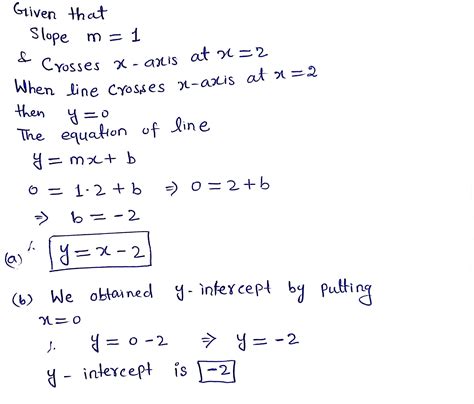 Given that
Slope m = 1
& Crosses x-axis at x=2
When line crosses x-axis at x=2
then y=0
The equation of line
y = mx + b
0 = 1·2 + b ⇒ 0 = 2+b
⇒ b = -2
(a) ∴ y = x - 2
(b) We obtained y-intercept by putting
x=0
∴ y = 0 - 2 ⇒ y = -2
y - intercept is -2